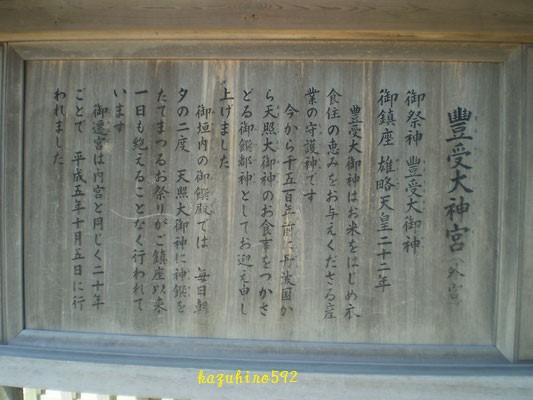 豊受大神宮（外宮）
御祭神 豊受大御神
御鎮座 雄略天皇二十二年
豊受大御神はお米をはじめ衣
食住の恵みをお与えくださる産
業の守護神です
今から千五百年前に丹波国か
ら天照大御神のお食事をつかさ
どる御饌都神としてお迎え申し
上げました
御垣内の御饌殿では 毎日朝
夕の二度 天照大御神に神饌を
たてまつるお祭りがご鎮座以来
一日も絶えることなく行われて
います
御遷宮は内宮と同じく二十年
ごとで 平成五年十月五日に行
われました
kazuhiro592